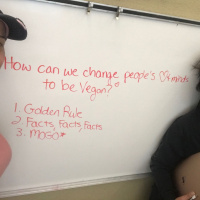 How can we change people's ♡+minds
to be Vegan?
1. Golden Rule
2. Facts, Facts, Facts
3. MOGO*